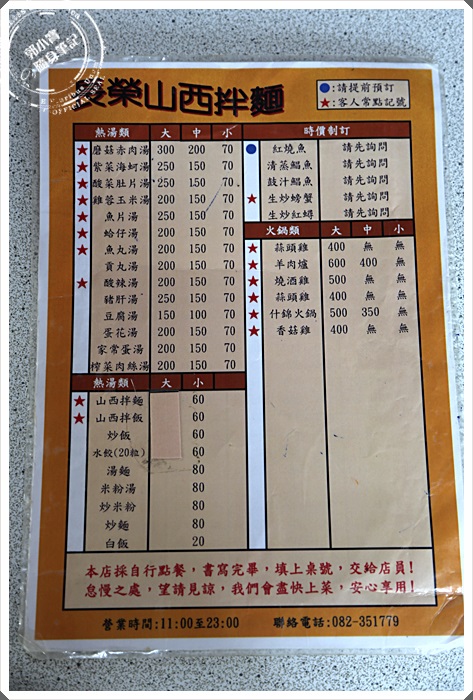 郭小寶
隨身筆記
榮山西拌麵
●:請提前預訂
★:客人常點記號
熱湯類 大 中 小
★ 磨菇赤肉湯 300 200 70
★ 紫菜海蚵湯 250 150 70
★ 酸菜肚片湯 250 150 70
★ 雞蓉玉米湯 200 150 70
★ 魚片湯 250 150 70
★ 蛤仔湯 200 150 70
★ 魚丸湯 200 150 70
貢丸湯 200 150 70
★ 酸辣湯 200 150 70
豬肝湯 250 150 70
豆腐湯 150 100 70
蛋花湯 200 150 70
家常蛋湯 200 150 70
榨菜肉絲湯 200 150 70
熱湯類 大 小
★ 山西拌麵 60
★ 山西拌飯 60
炒飯 60
水餃(20粒) 60
湯麵 80
米粉湯 80
炒米粉 80
炒麵 80
白飯 20
時價制訂
● 紅燒魚 請先詢問
清蒸鯧魚 請先詢問
鼓汁鯧魚 請先詢問
★ 生炒螃蟹 請先詢問
生炒紅蟳 請先詢問
火鍋類 大 中 小
★ 蒜頭雞 400 無 無
★ 羊肉爐 600 400 無
★ 燒酒雞 500 無 無
★ 蒜頭雞 400 無 無
★ 什錦火鍋 500 350 無
★ 香菇雞 400 無 無
本店採自行點餐，書寫完畢，填上桌號，交給店員!
怠慢之處，望請見諒，我們會盡快上菜，安心享用!
營業時間:11:00至23:00 聯絡電話:082-351779